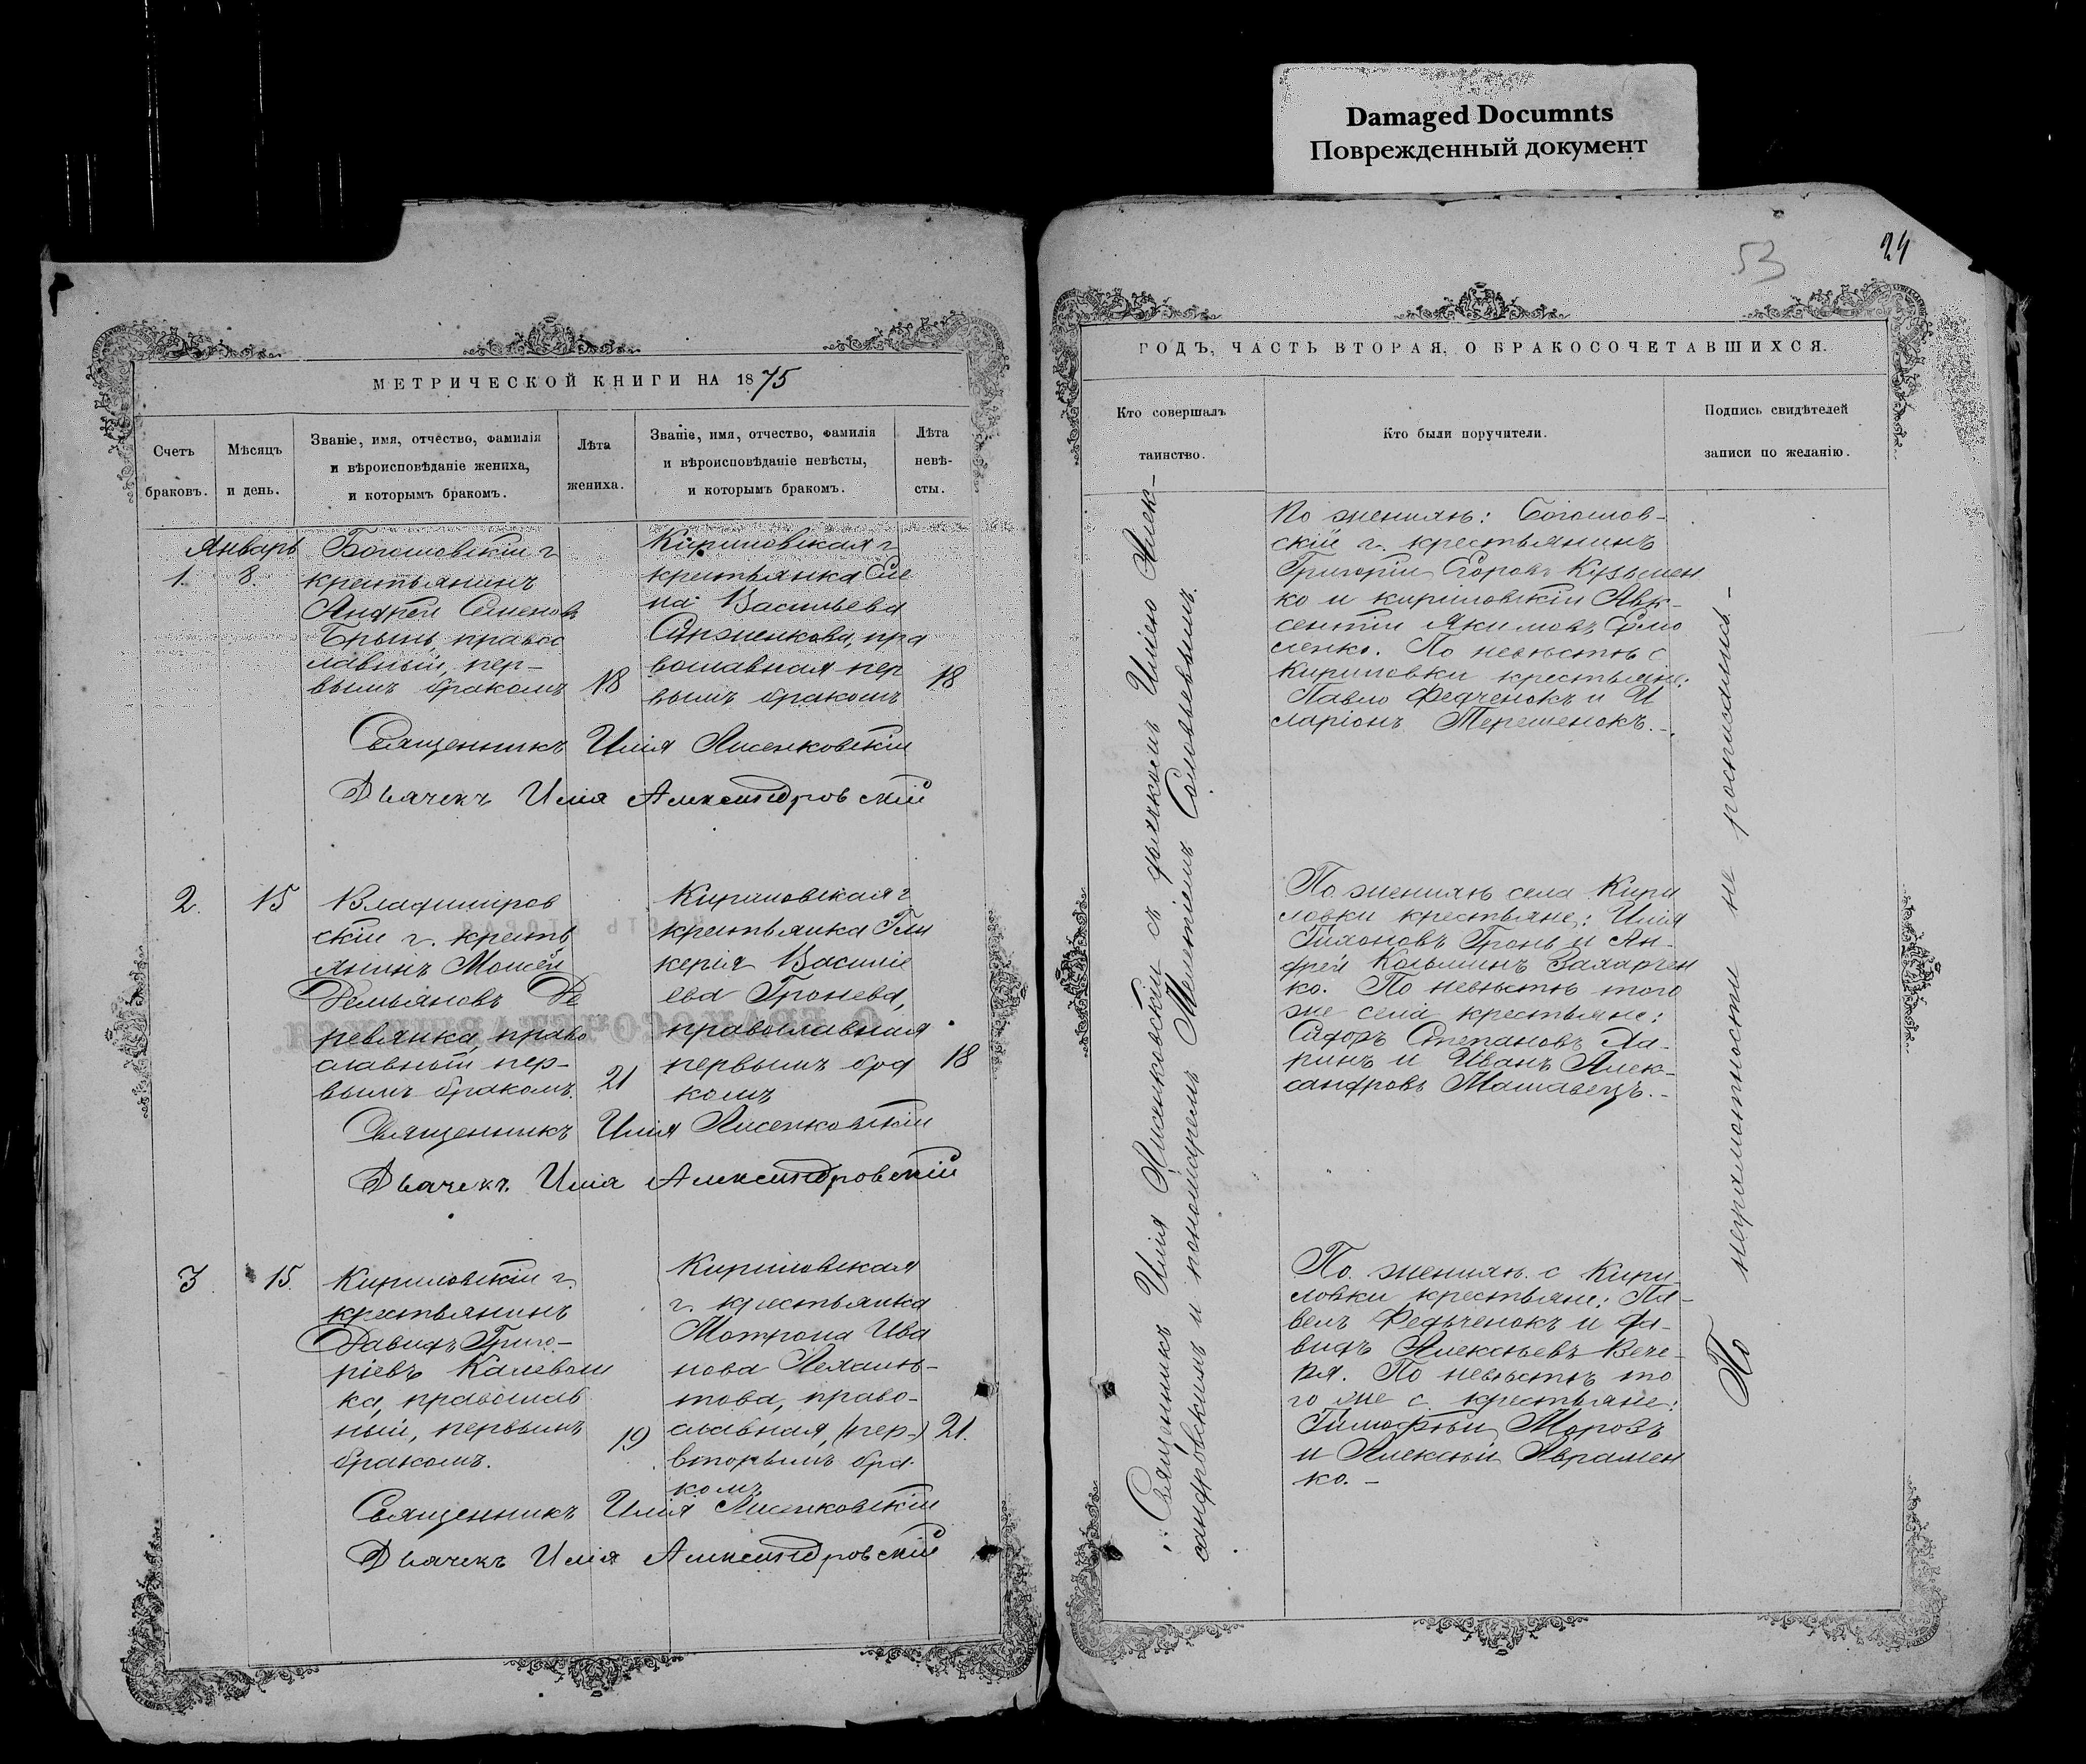 Damaged Documnts
Поврежденный документ
МЕТРИЧЕСКОЙ КНИГИ НА 1875
Счетъ браковъ.
Мѣсяцъ и день.
Званіе, имя, отчество, фамилія
и вѣроисповѣданіе жениха,
и которымъ бракомъ.
Лѣта
жениха.
Званіе, имя, отчество, фамилія
и вѣроисповѣданіе невѣсты,
и которымъ бракомъ.
Лѣта
невѣ-
сты.
Январь
1. 8.
Богословскій г.
крестьянинъ
Андрей Семеновъ
Брынь, правос
лавный, пер-
вымъ бракомъ
18
Кириловская г.
крестьянка Еле
на Васильева
пра
вославная пер
вымъ бракомъ
18
Священникъ Илія Лисенковскій
Дьячекъ Илія Александровскій
2. 15
Владимиров
скій г. кресть
янинъ Моисей
Демьяновъ Де
ревянка, право
славный пер-
вымъ бракомъ.
21
Кириловская г.
крестьянка Гли
керія Василіе
ва Гронева,
православная
первымъ бра
комъ
18
Священникъ Илія Лисенковскій
Дьячекъ Илія Александровскій
3. 15.
Кириловскій г.
крестьянинъ
Давидъ Григо-
ріевъ
ка, православ
ный, первымъ
бракомъ.
19
Кириловская
г. крестьянка
Матрона Ива
нова
право-
славная, (пер-)
вторымъ бра
комъ
21.
Священникъ Илія Лисенковскій
Дьячекъ Илія Александровскій
53
24
ГОДЪ, ЧАСТЬ ВТОРАЯ, О БРАКОСОЧЕТАВШИХСЯ.
Кто совершалъ
таинство.
Кто были поручители.
Подпись свидѣтелей
записи по желанію.
Священникъ Илія Лисенковскій съ дьячкомъ Иліею Алек-
сандровскимъ и пономаремъ Мелетіемъ Соловьевымъ.
По женихѣ: Богослов-
скій г. крестьянинъ
Григорій Егоровъ Кузьмен
ко и кириловскій Авк-
сентій Якимовъ Ермо
ленко. По невѣстѣ с
Кириловки крестьяне:
Павло Федченокъ и И
ларіонъ Терешенокъ.-
По женихѣ села Кири
ловки крестьяне: Илія
Тихоновъ Гронь и Ан-
дрей Козьминъ Захарчен
ко. По невѣстѣ того
же села крестьяне:
Сидоръ Степановъ Ха-
ринъ и Иванъ Алек-
сандровъ Машавецъ.-
По женихѣ с Кири
ловки крестьяне: Па-
велъ Федьченокъ и Да-
видъ Алексѣевъ Вече-
ря. По невѣстѣ то
го же с. крестьяне:
Тимофѣй Моровъ
и Алексѣй Аврамен
ко.-
По неграмотности не росписались -